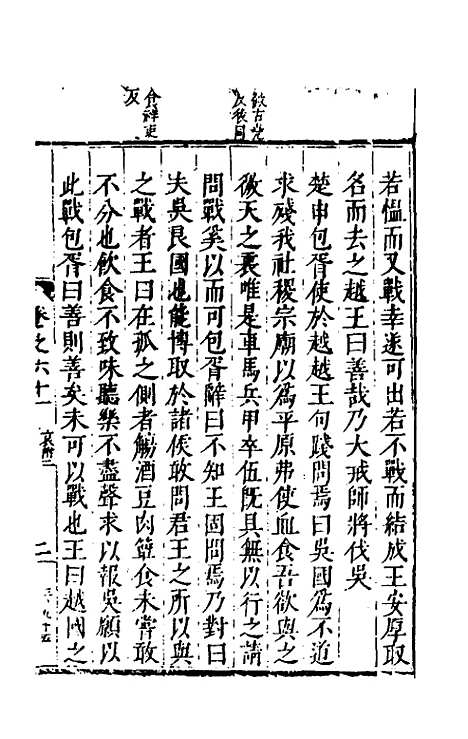 若慍而又戰幸遂可出若不戰而結成王安厚取
名而去之越王曰善哉乃大戒師將伐吳
楚申包胥使於越越王句踐問焉曰吳國爲不道
求殘我社稷宗廟以爲平原弗使血食吾欲與之
徼天之衷唯是車馬兵甲卒伍既具無以行之請
問戰奚以而可包胥辭曰不知王固問焉乃對曰
夫吳良國也能博取於諸侯敢問君王之所以與
之戰者王曰在孤之側者觴酒豆肉簞食未嘗敢
不分也飲食不致味聽樂不盡聲求以報吳願以
此戰包胥曰善則善矣未可以戰也王曰越國之
卷之六十一
哀附三
二